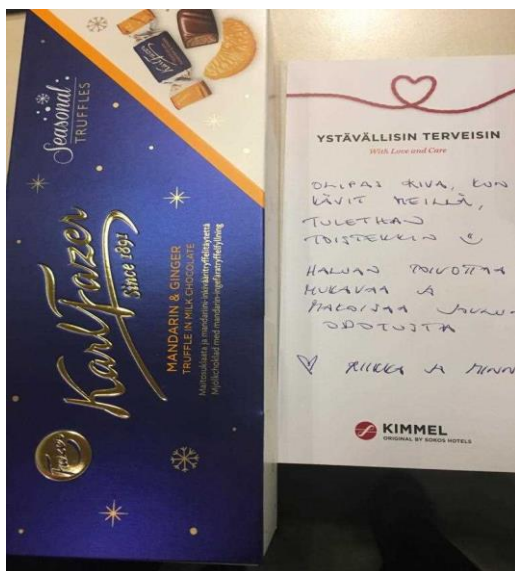 Seasonal
TRUFFLES
Karl Fazer
Since 1891
MANDARIN & GINGER
TRUFFLE IN MILK CHOCOLATE
Maitosuklaata ja mandariini-inkivääritryffelitäytettä
Mjölkchoklad med mandarin-ingefäratryffelfyllning
Fazer
Karl Fazer
YSTÄVÄLLISIN TERVEISIN
With Love and Care
OLIPAS KIVA, KUN
KÄVIT MEILLÄ,
TULETHAN
TOISTEKKIN
HALUAN TOIVOTTAA
MUKAVAA JA
MAKOISAA JOULU-
ODOTUSTA
RIIKKA JA MINN
KIMMEL
ORIGINAL BY SOKOS HOTELS